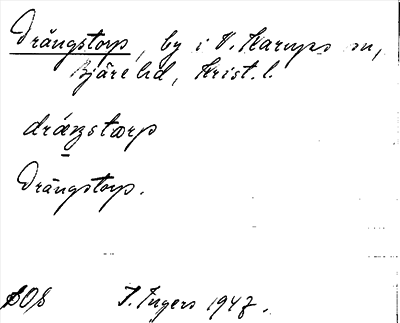 Drängstorp, by i V. Karups sn,
Bjäre hd, Krist. l.
dräŋstɔrp
Drängstorp.
SOS I. Ingers 1947.